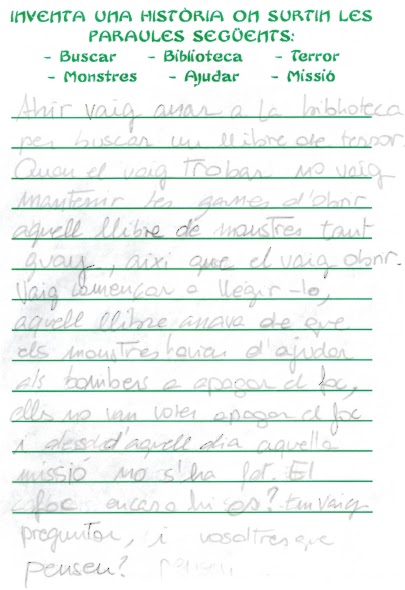 INVENTA UNA HISTÒRIA ON SURTIN LES
PARAULES SEGÜENTS:
- Buscar - Biblioteca - Terror
- Monstres - Ajudar - Missió
Ahir vaig anar a la biblioteca
per buscar un llibre de terror.
Quan el vaig trobar no vaig
mantenir les ganes d'obrir
aquell llibre de monstres tant
guay, aixi que el vaig obrir.
Vaig començar a llegir-lo,
aquell llibre anava de que
els monstres havien d'ajudar
als bombers a apagar el foc,
ells no van voler apagar el foc
i desde d'aquell dia aquella
missió no s'ha fet. El
foc encara hi es? Em vaig
preguntar, i vosaltres que
penseu?